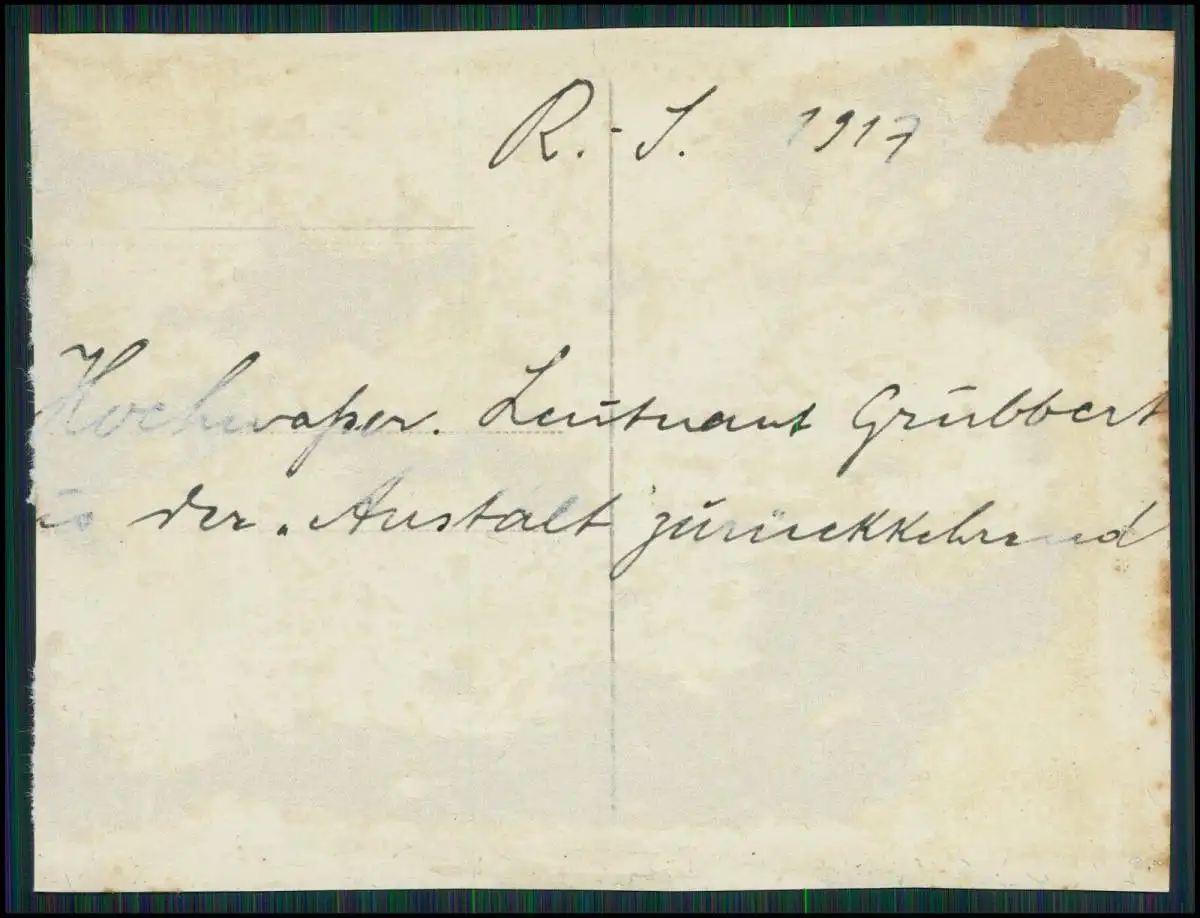 R.-S. 1917
Hochwaßer. Leutnant Grubbert
der Anstalt zurückkehrend